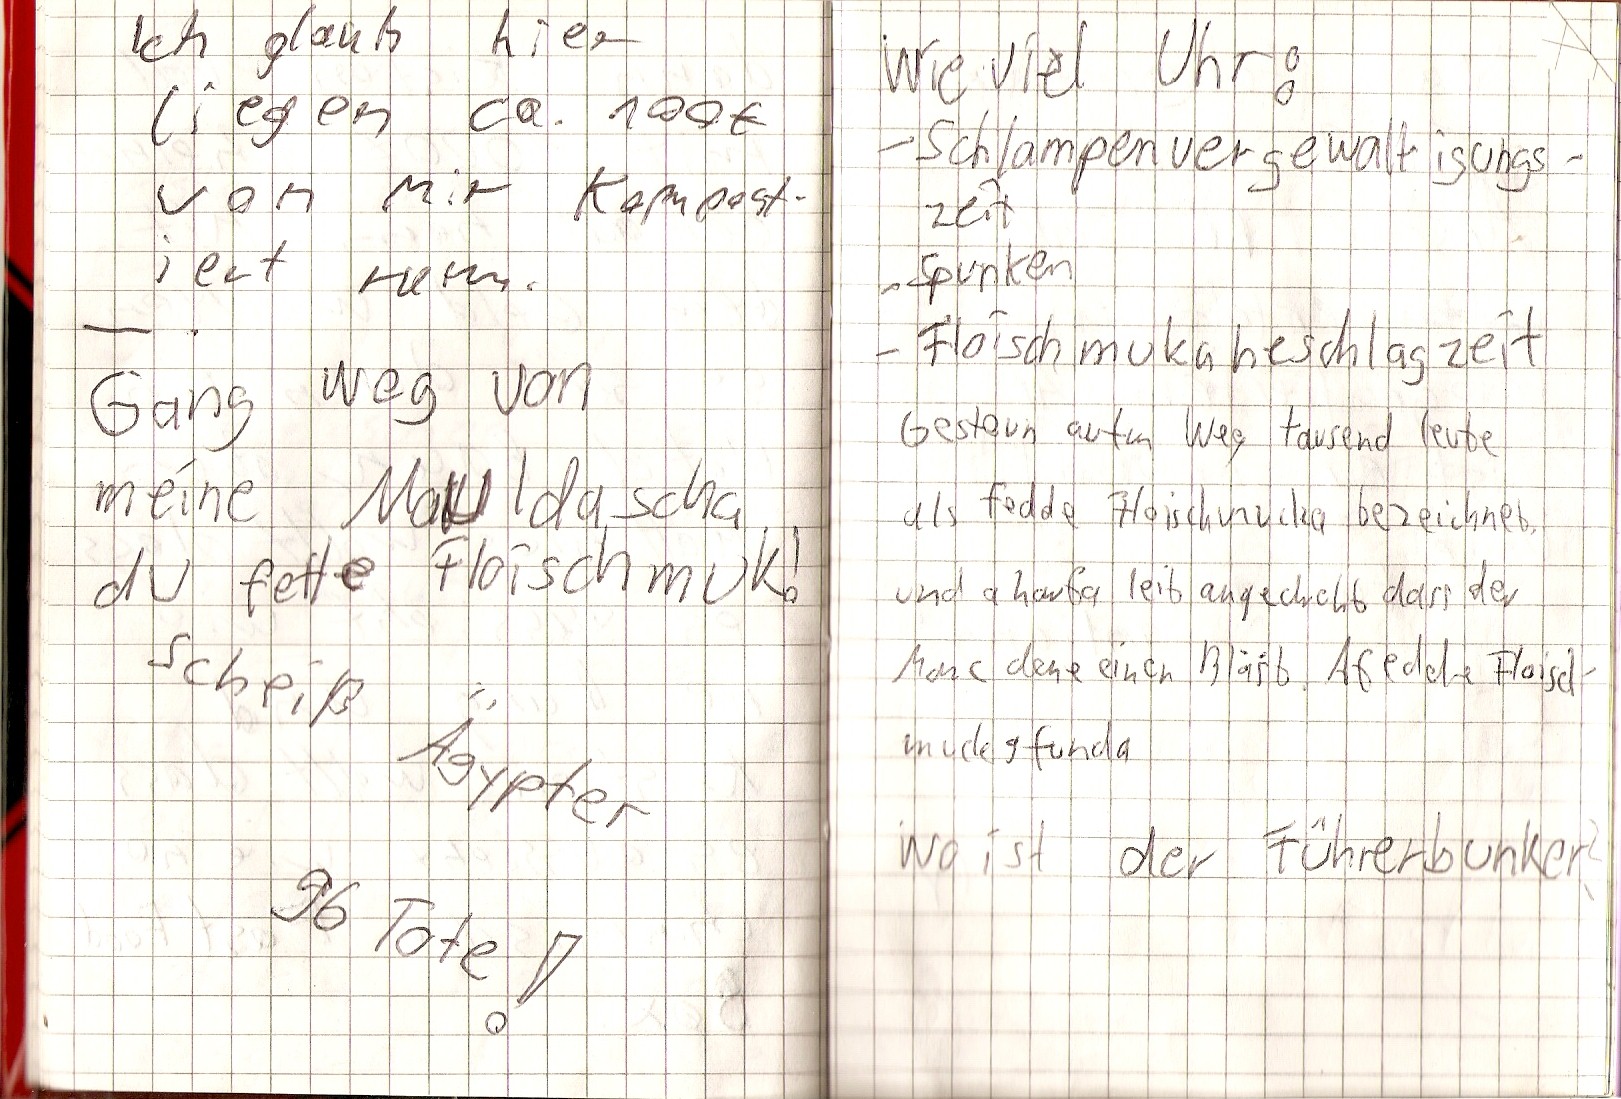 Ich glaub hier
liegen ca. 100€
von mir Kompost-
iert rum.
Gang weg von
meine Mauldascha
du fette Floischmuk!
Scheiß
Ägypter
96 Tote!
Wie viel Uhr:
- Schlampenvergewaltigungs-
zeit
- Spunken
- Floischmukabeschlagzeit
Gestern aufm Weg tausend leute
als fedde Floischmucka bezeichneb.
und a haufa leib angedreht dass der
Marc dene einen Bläsb. A fedde Floisch-
muckgfunda
Wo ist der Führerbunker?